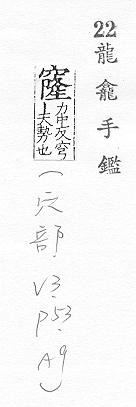 22 龍龕手鑑
窿力中反穹
丨天勢也
(穴部 V3. P53. A9)